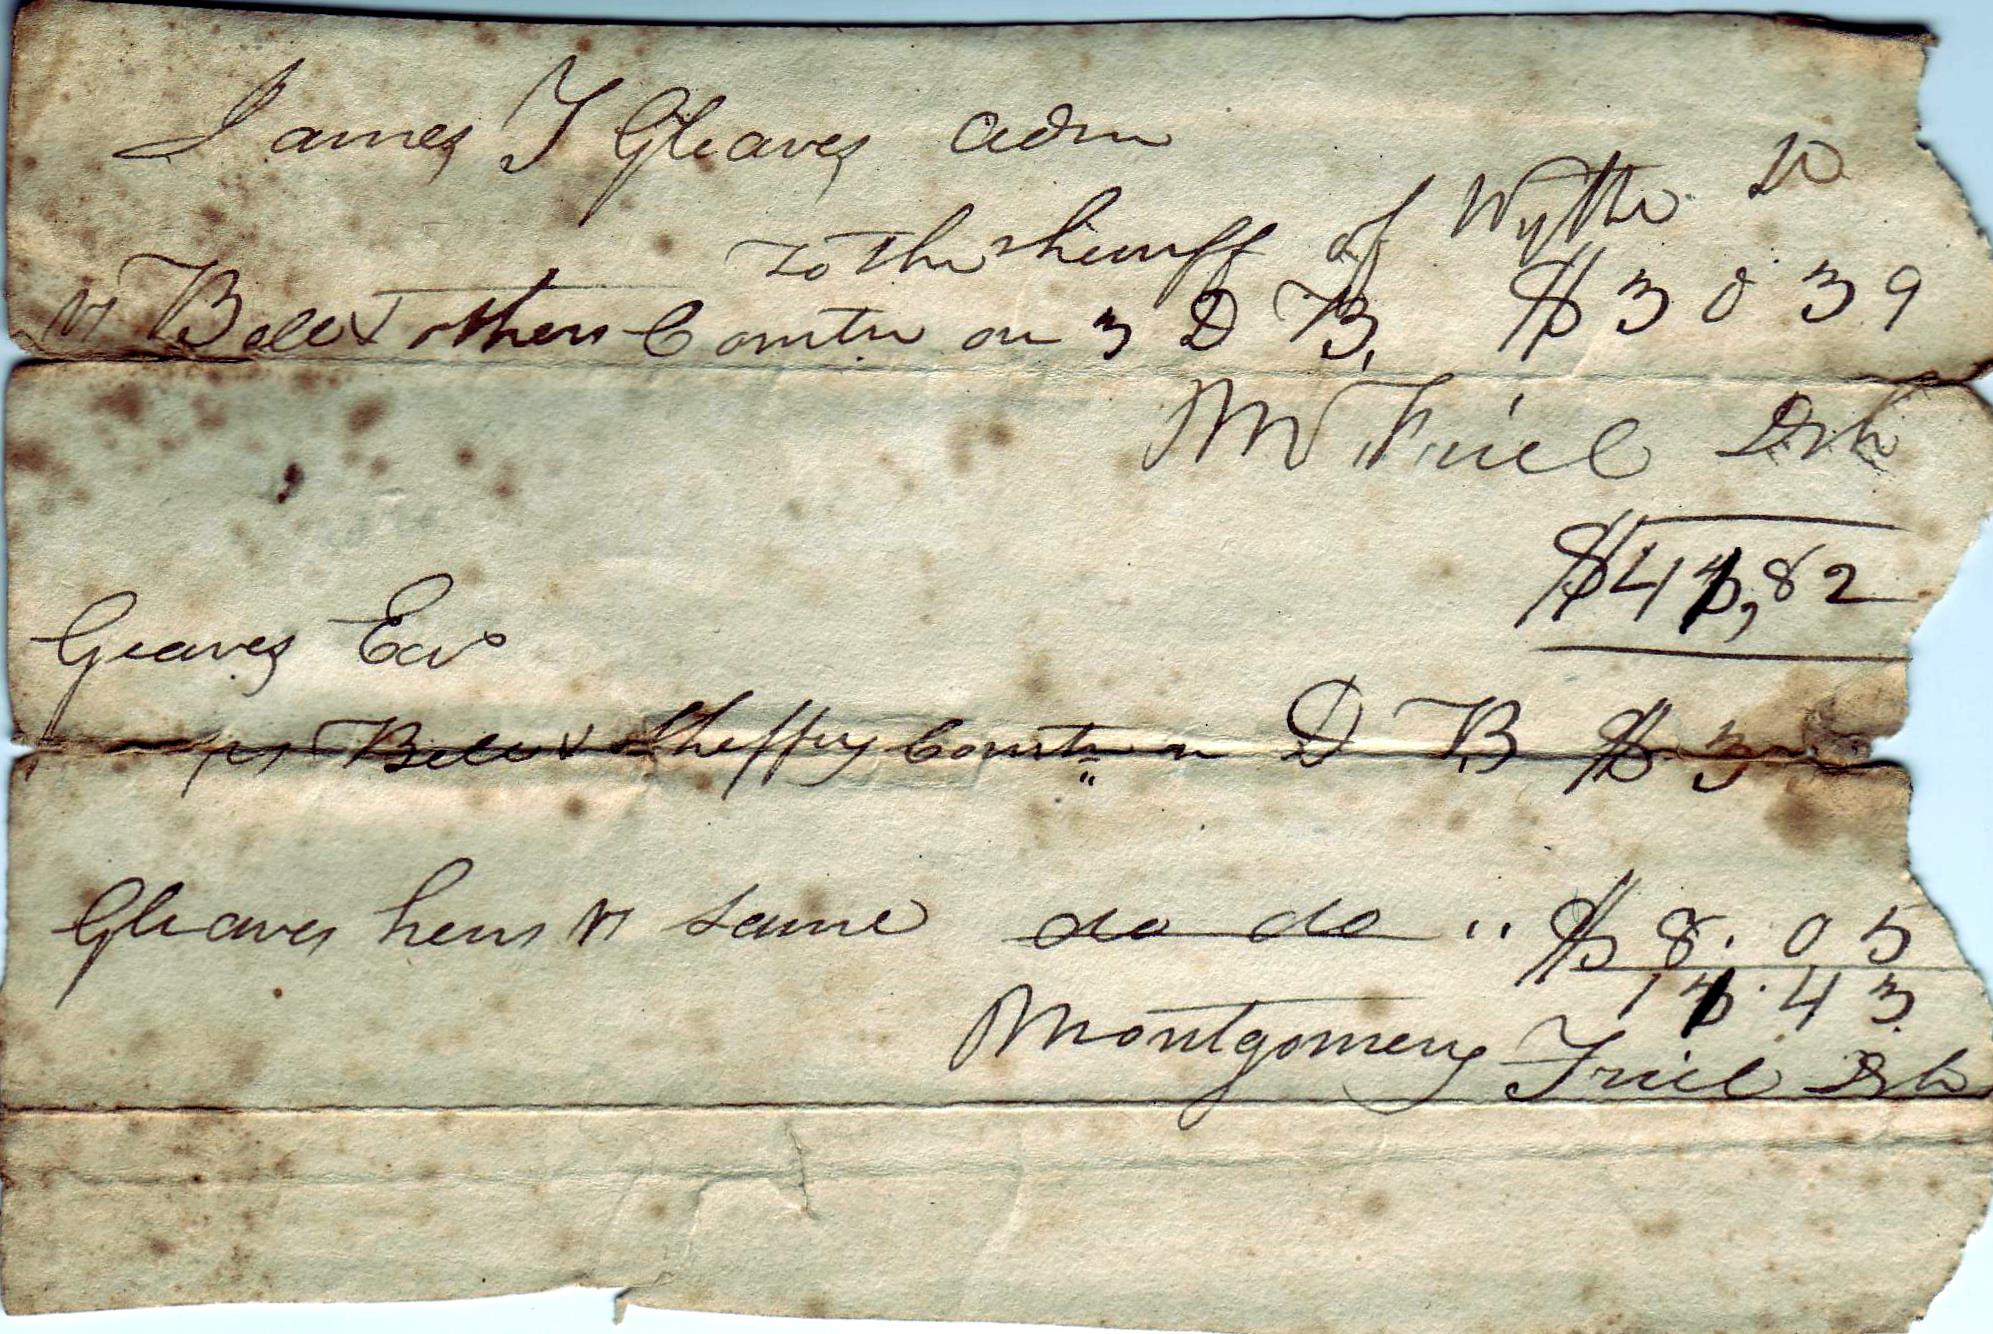 James T Gleaves adm
to the sheriff of Wythe Dr
vs Bell & others Comtn on 3 D B, $30 39
M Friel Dsh
$44,82
Gleaves Exr
vs Bell & Sheffey Comtn on D B $ 3
Gleaves heirs vs same do do " $8.05
14.43
Montgomery Friel Dsh